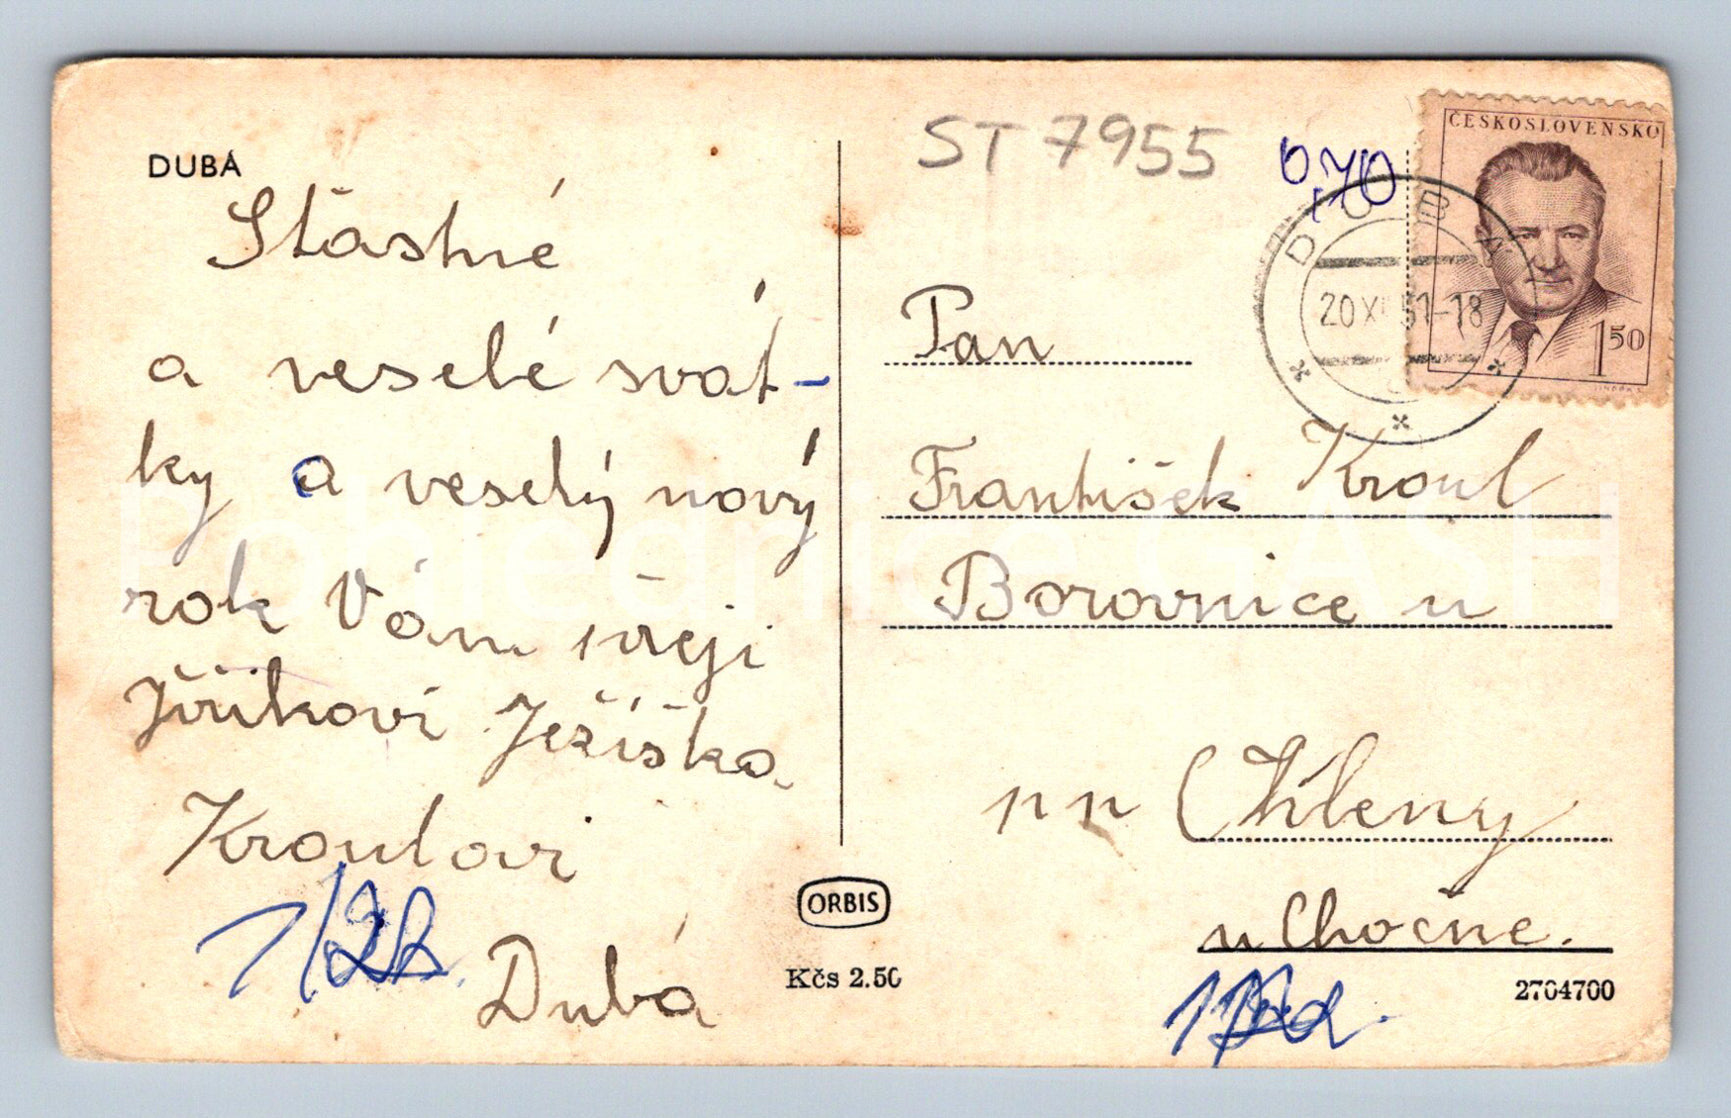 DUBÁ
Šťastné
a veselé svát-
ky a veselý nový
rok Vám přeji
Jiříkovi Ježíška
Kroulovi
Dubá
ST 7955
0,70
ČESKOSLOVENSKO
1 50
DUBÁ
20 XII 51-18
Pan
František Kroul
Borovnice u
pp Chleny
u Chocně.
ORBIS
Kčs 2.50
2704700
Pohlednice GASH